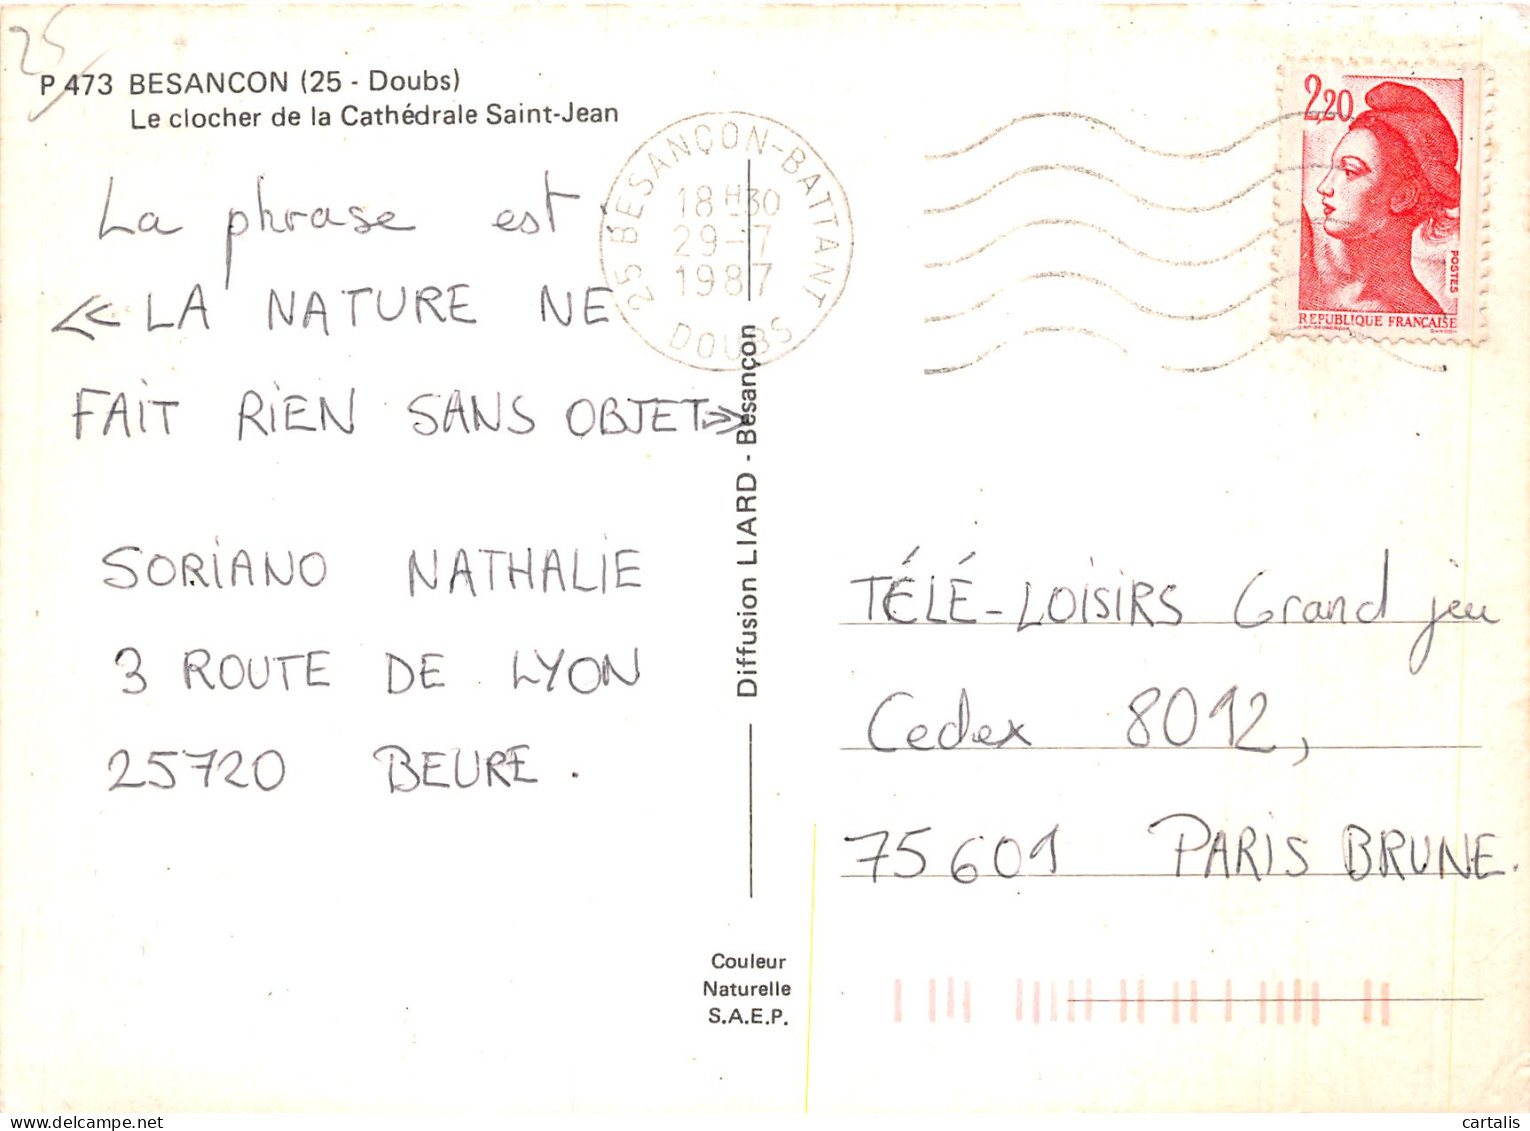 25
P 473 BESANCON (25 - Doubs)
Le clocher de la Cathédrale Saint-Jean
La phrase est :
« LA NATURE NE
FAIT RIEN SANS OBJET »
SORIANO NATHALIE
3 ROUTE DE LYON
25720 BEURE .
25 BESANÇON-BATTANT
18 H 30
29-7
1987
DOUBS
Diffusion LIARD - Besançon
Couleur
Naturelle
S.A.E.P.
2,20
POSTES
REPUBLIQUE FRANÇAISE
TÉLÉ-LOISIRS Grand jeu
Cedex 8012,
75601 PARIS BRUNE.
cartalis